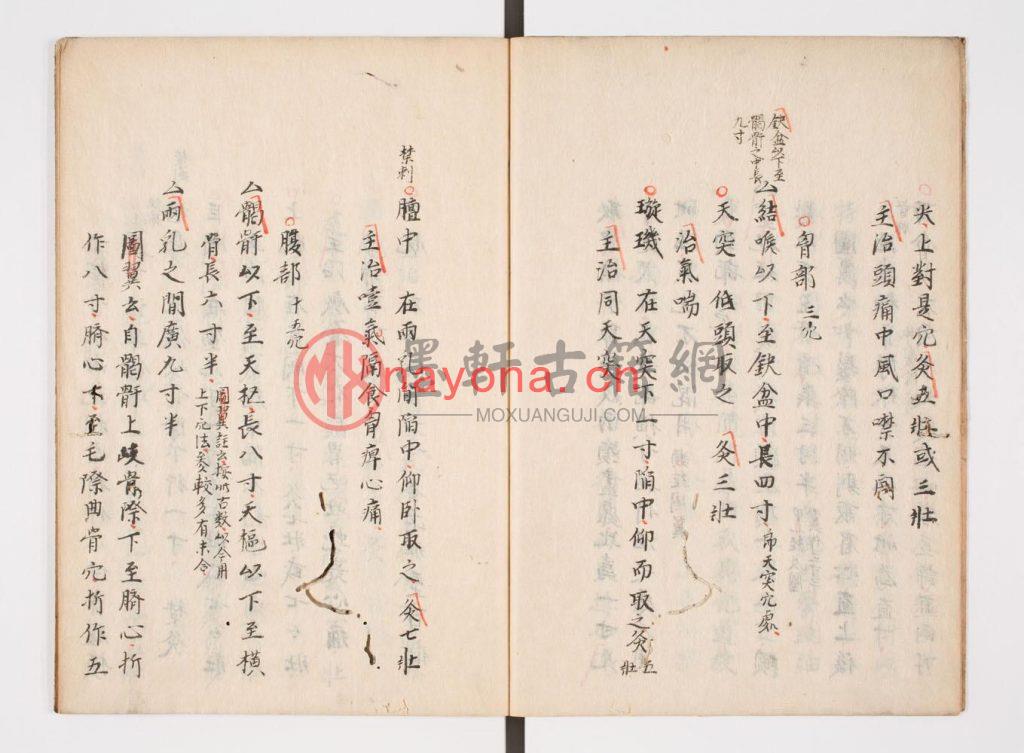 尖上對是穴灸五壯或三壯
主治頭痛中風口噤不開
胷部 三穴
缺盆以下至
𩩲骬之中長
九寸
结喉以下至缺盆中長四寸 即天突穴處
天突 低頭取之 灸三壯
治氣喘
璇璣 在天突下一寸陷中仰而取之灸五壯
主治同天突
禁刺
膻中 在兩乳間陷中仰卧取之灸七壯
主治噎氣隔食胷痺心痛
腹部 十五穴
𩩲骬以下至天枢長八寸天樞以下至橫
骨長六寸半 圖翼註云按此古數以今用
上下穴法參較多有未合
兩乳之間廣九寸半
圖翼云自𩩲骬上歧骨際下至臍心折
作八寸臍心下至毛際曲骨穴折作五
墨軒古籍網
nayona.cn
MOXUANGUJI.COM